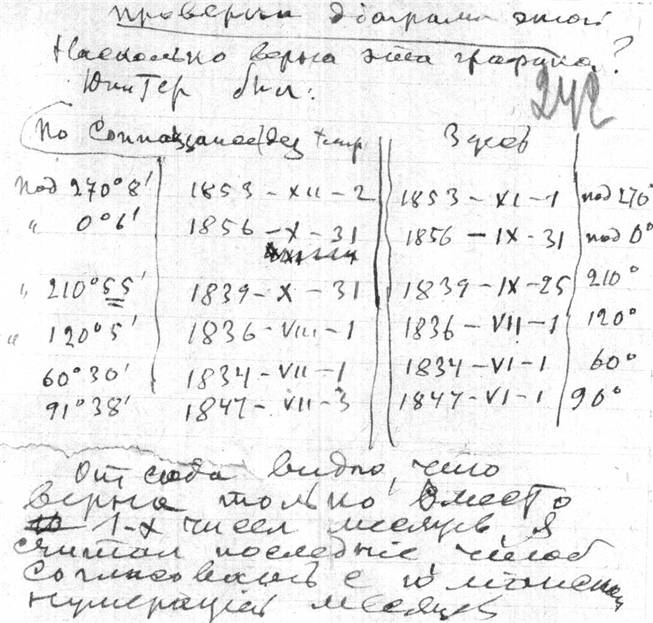 Проверка диаграммы этой
Насколько верна эта графика?
242
Юпитер был:
По Connaissance des temps Здесь
под 270°8' 1853-XII-2 1853-XI-1 под 270°
" 0°6' 1856-X-31 1856-IX-31 под 0°
" 210°55' 1839-X-31 1839-IX-25 210°
" 120°5' 1836-VIII-1 1836-VII-1 120°
60°30' 1834-VII-1 1834-VI-1 60°
91°38' 1847-VII-3 1847-VI-1 90°
Отсюда видно, что
верна только вместо
1-х чисел месяцев я
считал последние, чтоб
согласовать с
нумерацией месяцев